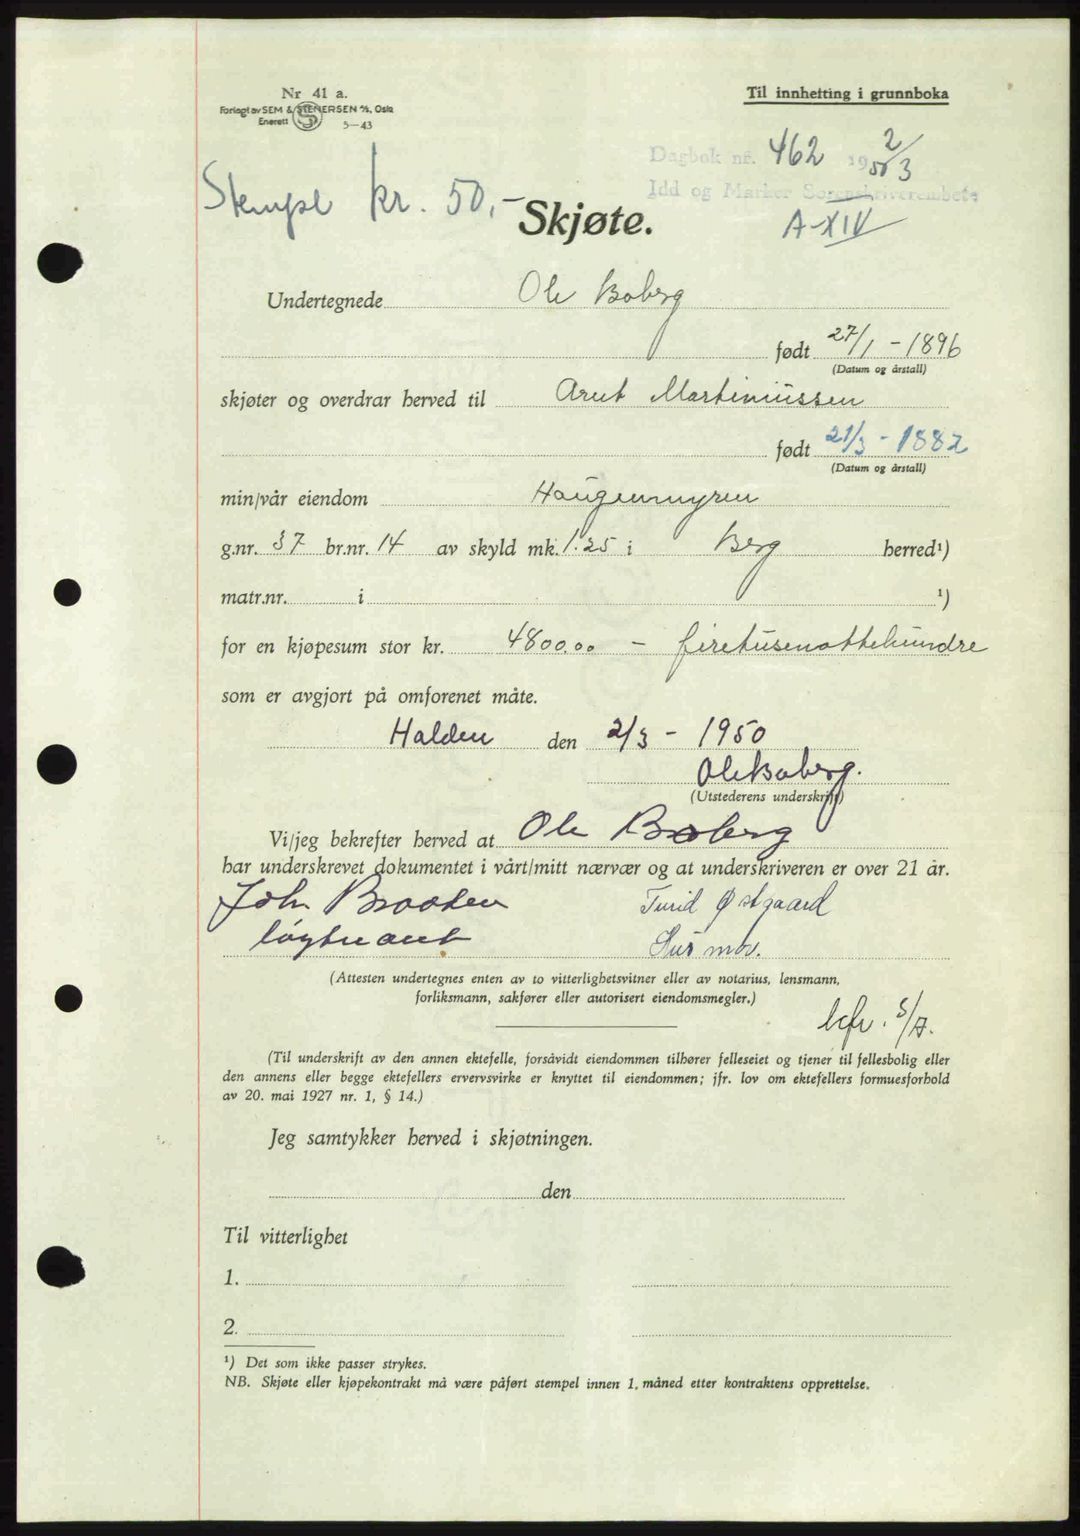 Nr 41 a.
Forlagt av SEM & STENERSEN A/S, Oslo
Enerett 5-43
Til innhefting i grunnboka
Dagbok nr. 462 1950 2/3
Idd og Marker Sorenskriverembete
A-XIV
Stempel kr. 50,-
Skjøte.
Undertegnede Ole Boberg
født 27/1-1896
(Datum og årstall)
skjøter og overdrar herved til Arnt Martiniussen
født 21/3-1882
(Datum og årstall)
min/vår eiendom Haugenmyren
g.nr. 37 br.nr. 14 av skyld mk. 1.25 i Berg herred¹)
matr.nr. i ¹)
for en kjøpesum stor kr. 4800.00 - firetusenottehundre
som er avgjort på omforenet måte.
Halden den 2/3-1950
Ole Boberg.
(Utstederens underskrift)
Vi/jeg bekrefter herved at Ole Boberg
har underskrevet dokumentet i vårt/mitt nærvær og at underskriveren er over 21 år.
John Braaten Turid Østgaard
løytnant Husmor.
(Attesten undertegnes enten av to vitterlighetsvitner eller av notarius, lensmann,
forliksmann, sakfører eller autorisert eiendomsmegler.)
(Til underskrift av den annen ektefelle, forsåvidt eiendommen tilhører felleseiet og tjener til fellesbolig eller
den annens eller begge ektefellers ervervsvirke er knyttet til eiendommen; jfr. lov om ektefellers formuesforhold
av 20. mai 1927 nr. 1, § 14.)
Jeg samtykker herved i skjøtningen.
den
Til vitterlighet
1.
2.
¹) Det som ikke passer strykes.
NB. Skjøte eller kjøpekontrakt må være påført stempel innen 1. måned etter kontraktens opprettelse.